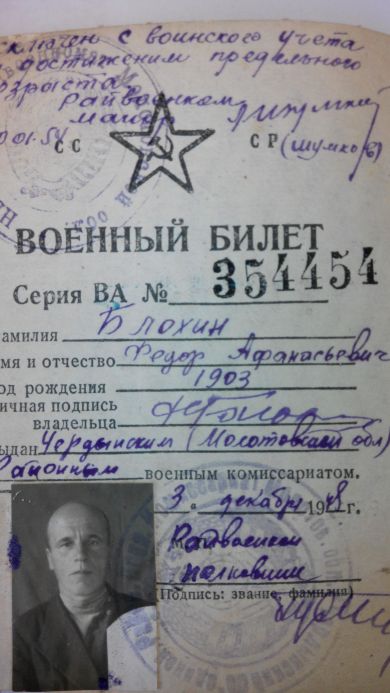 ключен с воинского учета
достижением предельного
возраста
Райвоенком
майор
01.54
СС СР
(Шумков)
ВОЕННЫЙ БИЛЕТ
Серия ВА № 354454
амилия Блохин
мя и отчество Федор Афанасьевич
од рождения 1903
ичная подпись
владельца
ыдан Чердынским (Молотовской обл)
Районным военным комиссариатом.
3 декабря 1948 г.
Райвоенком
полковник
(Подпись: звание, фамилия)